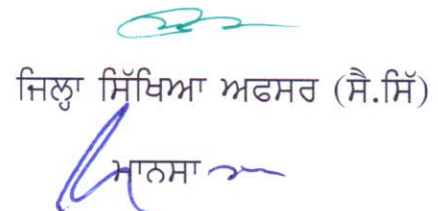 ਜਿਲ੍ਹਾ ਸਿੱਖਿਆ ਅਫਸਰ (ਸੈ.ਸਿੱ)
ਮਾਨਸਾ